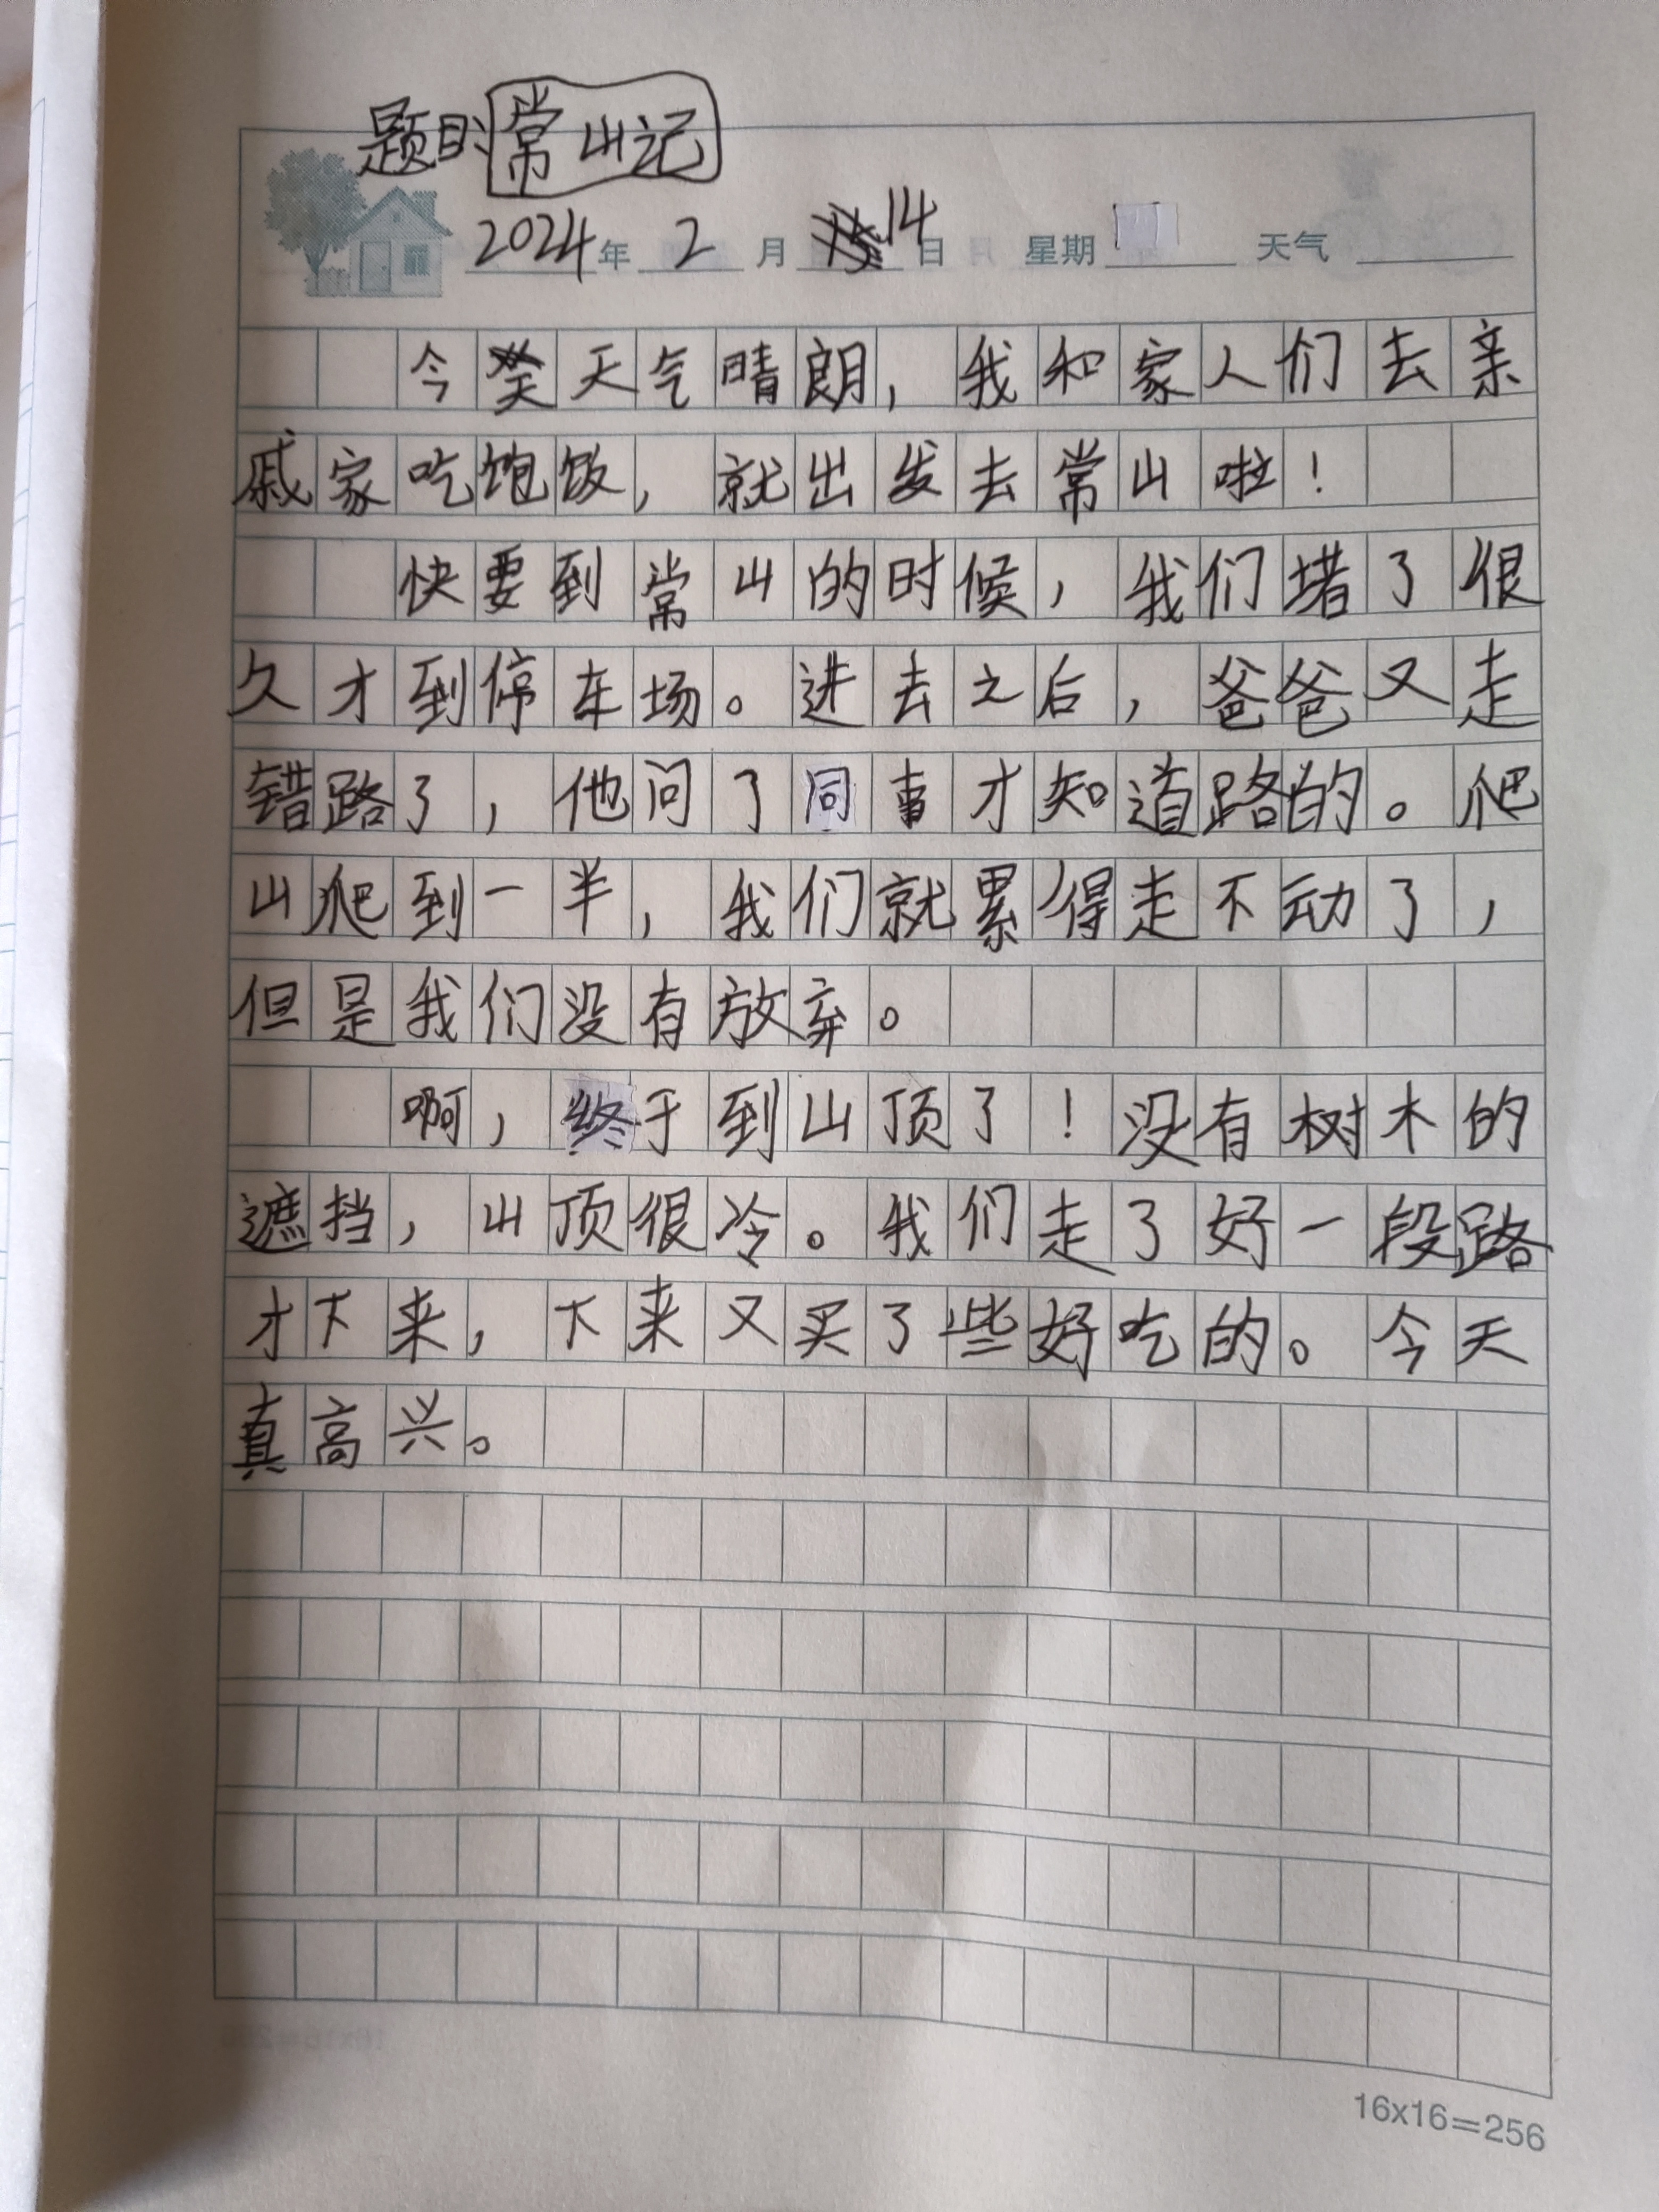 题目:常山记
2024年 2 月 14日 星期 天气
今天天气晴朗,我和家人们去亲
戚家吃饱饭,就出发去常山啦!
快要到常山的时候,我们堵了很
久才到停车场。进去之后,爸爸又走
错路了,他问了同事才知道路的。爬
山爬到一半,我们就累得走不动了,
但是我们没有放弃。
啊,终于到山顶了!没有树木的
遮挡,山顶很冷。我们走了好一段路
才下来,下来又买了些好吃的。今天
真高兴。
16x16=256